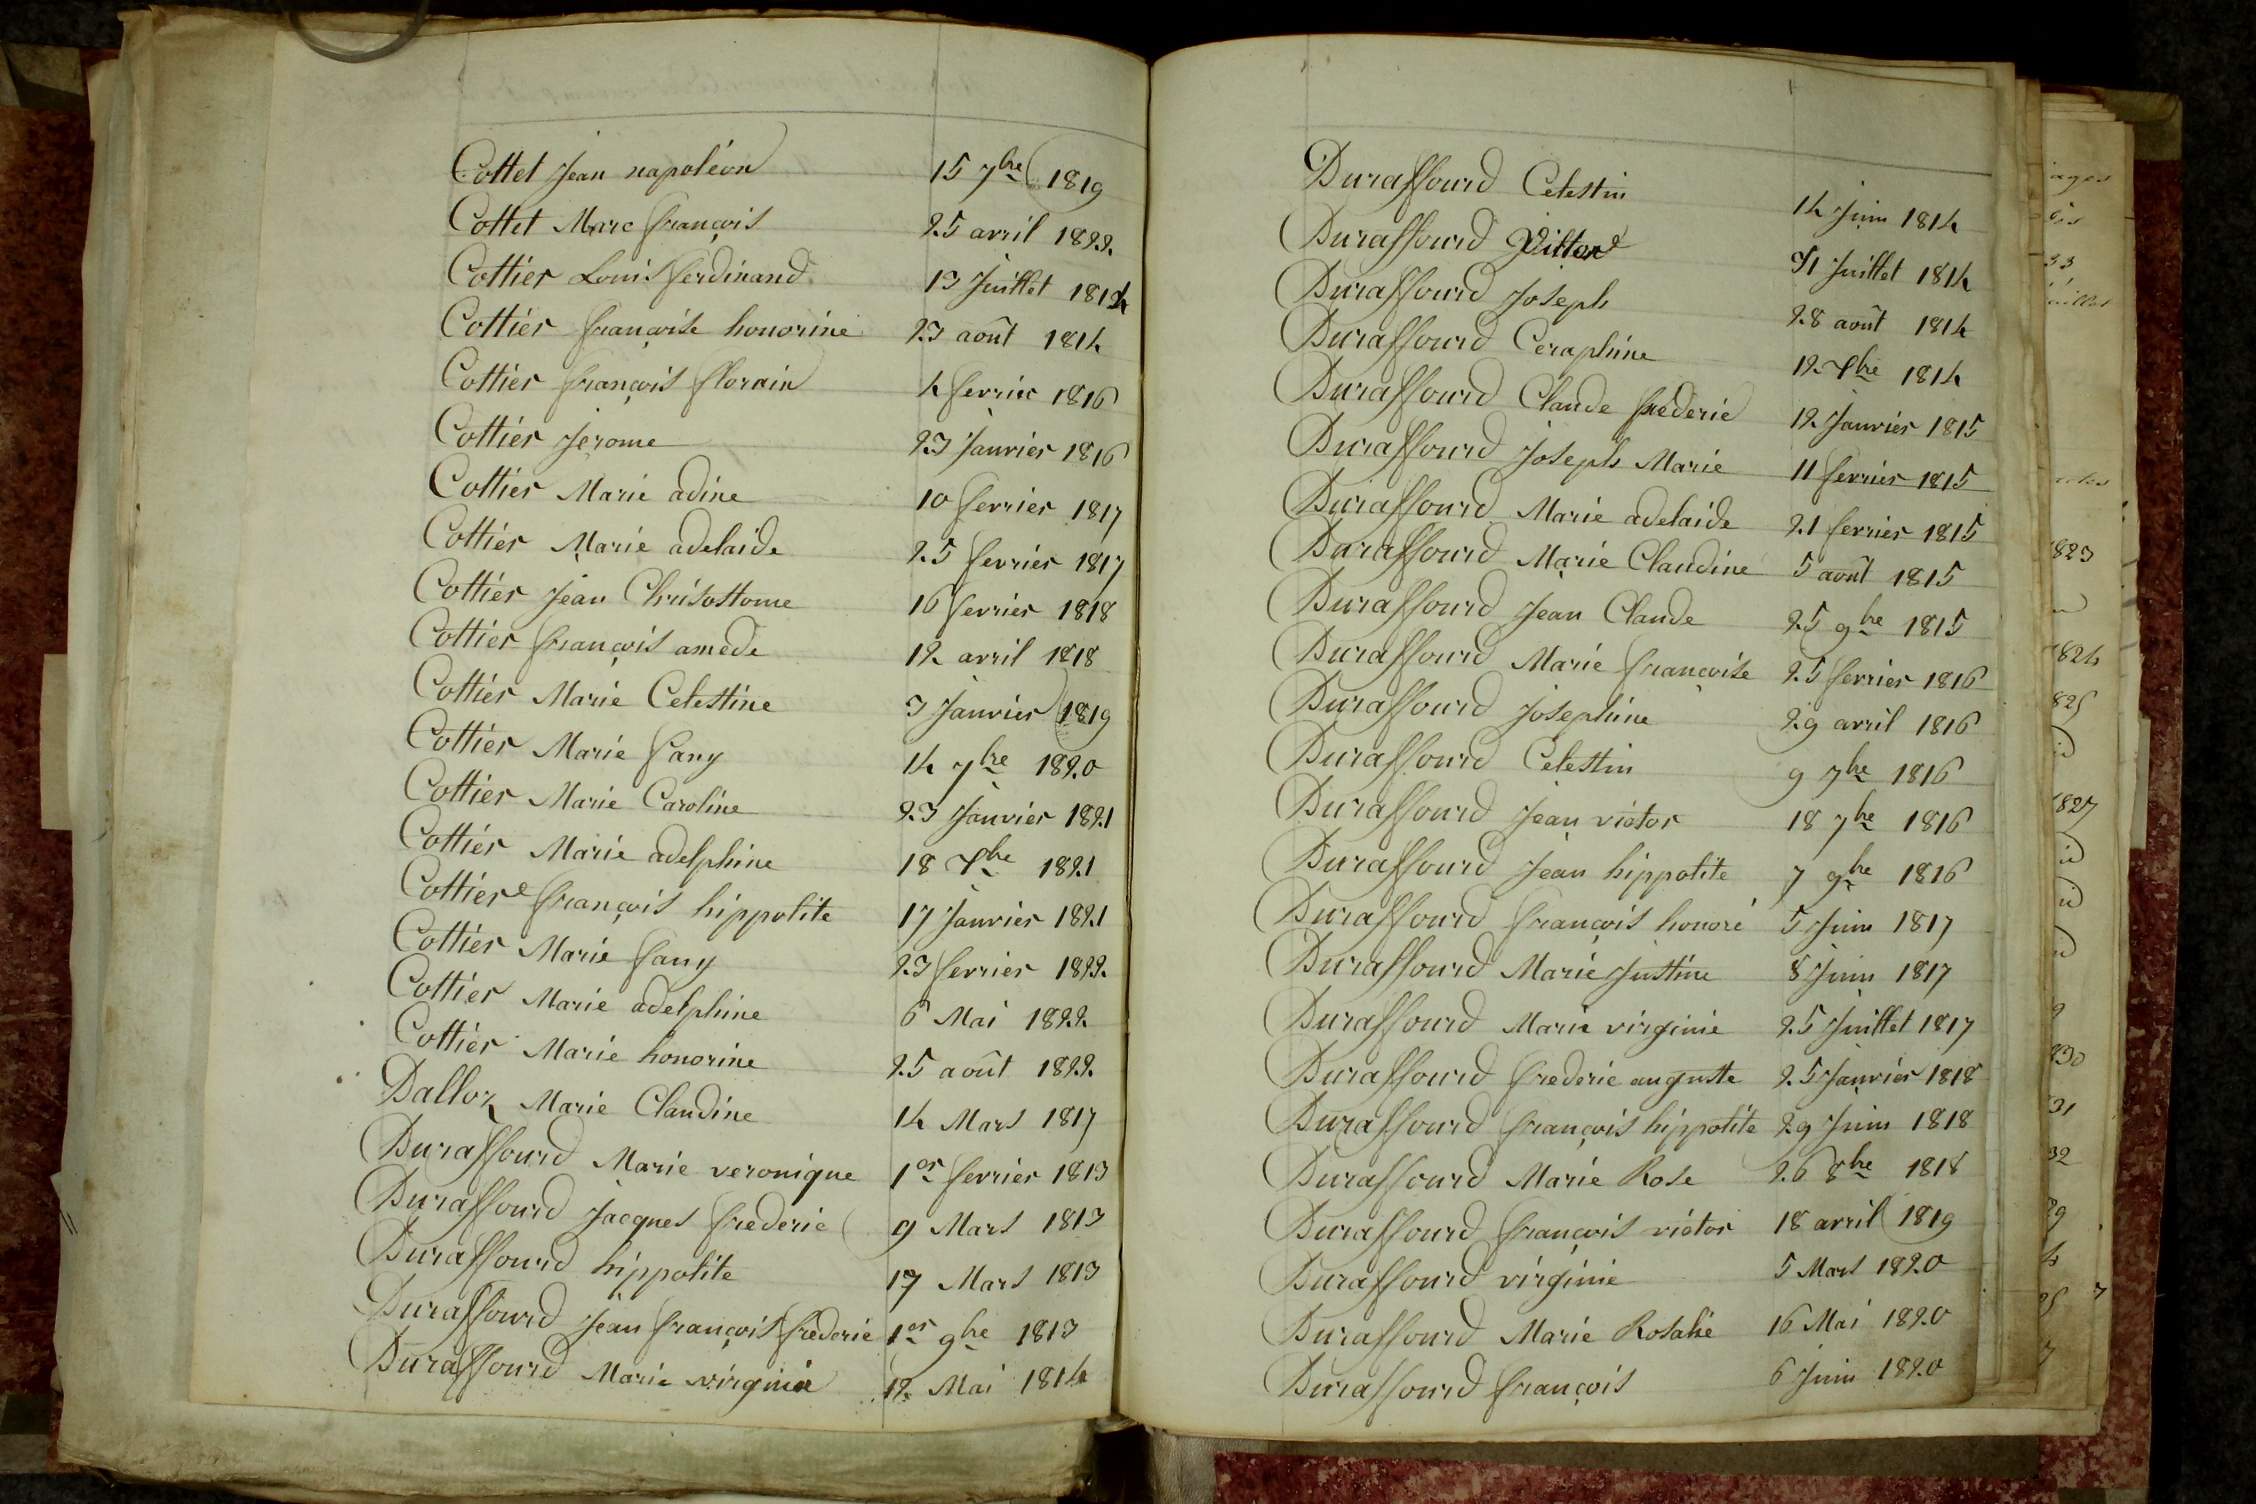 Cottet Jean napoléon 15 7bre 1819
Cottet Marc françois 25 avril 1822
Cottier Louis ferdinand 13 Juillet 1814
Cottier françoise honorine 23 août 1814
Cottier françois florain 4 fevrier 1816
Cottier Jerome 23 Janvier 1816
Cottier Marie adine 10 fevrier 1817
Cottier Marie adelaide 25 fevrier 1817
Cottier Jean Chrisostome 16 fevrier 1818
Cottier françois amede 12 avril 1818
Cottier Marie Celestine 3 Janvier 1819
Cottier Marie fany 14 7bre 1820
Cottier Marie Caroline 23 Janvier 1821
Cottier Marie adelphine 18 Xbre 1821
Cottier françois hippolite 17 Janvier 1821
Cottier Marie fany 23 fevrier 1822
Cottier Marie adelphine 6 Mai 1822
Cottier Marie honorine 25 août 1822
Dalloz Marie Claudine 14 Mars 1817
Duraffourd Marie veronique 1er fevrier 1813
Duraffourd Jacques frederic 9 Mars 1813
Duraffourd hippolite 17 Mars 1813
Duraffourd Jean françois frederic 1er 9bre 1813
Duraffourd Marie virginie 12 Mai 1814
Duraffourd Celestin 14 Juin 1814
Duraffourd 31 Juillet 1814
Duraffourd Joseph 28 août 1814
Duraffourd Ceraphine 12 Xbre 1814
Duraffourd Claude frederic 12 Janvier 1815
Duraffourd Joseph Marie 11 fevrier 1815
Duraffourd Marie adelaide 21 fevrier 1815
Duraffourd Marie Claudine 5 août 1815
Duraffourd Jean Claude 25 9bre 1815
Duraffourd Marie françoise 25 fevrier 1816
Duraffourd Josephine 29 avril 1816
Duraffourd Celestin 9 7bre 1816
Duraffourd Jean victor 18 7bre 1816
Duraffourd Jean hippolite 7 9bre 1816
Duraffourd françois honoré 5 Juin 1817
Duraffourd Marie Justine 8 Juin 1817
Duraffourd Marie virginie 25 Juillet 1817
Duraffourd frederic auguste 25 Janvier 1818
Duraffourd françois hippolite 29 Juin 1818
Duraffourd Marie Rose 26 8bre 1818
Duraffourd françois victor 18 avril 1819
Duraffourd virginie 5 Mars 1820
Duraffourd Marie Rosalie 16 Mai 1820
Duraffourd françois 6 Juin 1820